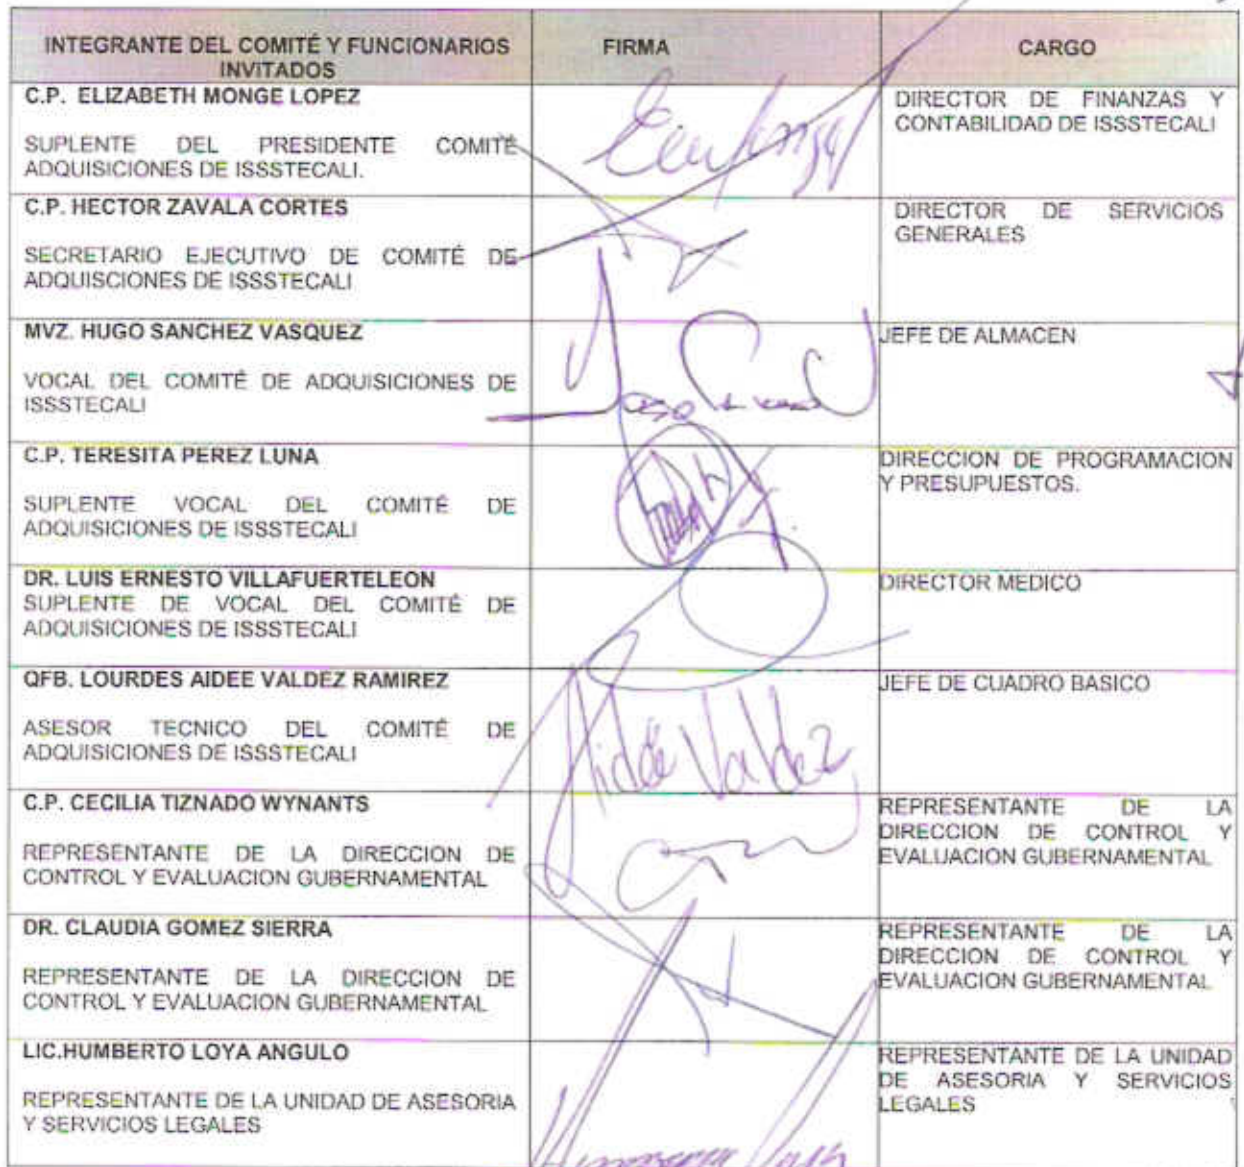 INTEGRANTE DEL COMITÉ Y FUNCIONARIOS
INVITADOS
FIRMA
CARGO
C.P. ELIZABETH MONGE LOPEZ
SUPLENTE DEL PRESIDENTE COMITÉ
ADQUISICIONES DE ISSSTECALI.
DIRECTOR DE FINANZAS Y
CONTABILIDAD DE ISSSTECALI
C.P. HECTOR ZAVALA CORTES
SECRETARIO EJECUTIVO DE COMITÉ DE
ADQUISCIONES DE ISSSTECALI
DIRECTOR DE SERVICIOS
GENERALES
MVZ. HUGO SANCHEZ VASQUEZ
VOCAL DEL COMITÉ DE ADQUISICIONES DE
ISSSTECALI
JEFE DE ALMACEN
C.P. TERESITA PEREZ LUNA
SUPLENTE VOCAL DEL COMITÉ DE
ADQUISICIONES DE ISSSTECALI
DIRECCION DE PROGRAMACION
Y PRESUPUESTOS.
DR. LUIS ERNESTO VILLAFUERTELEON
SUPLENTE DE VOCAL DEL COMITÉ DE
ADQUISICIONES DE ISSSTECALI
DIRECTOR MEDICO
QFB. LOURDES AIDEE VALDEZ RAMIREZ
ASESOR TECNICO DEL COMITÉ DE
ADQUISICIONES DE ISSSTECALI
Aidée Valdez
JEFE DE CUADRO BASICO
C.P. CECILIA TIZNADO WYNANTS
REPRESENTANTE DE LA DIRECCION DE
CONTROL Y EVALUACION GUBERNAMENTAL
REPRESENTANTE DE LA
DIRECCION DE CONTROL Y
EVALUACION GUBERNAMENTAL
DR. CLAUDIA GOMEZ SIERRA
REPRESENTANTE DE LA DIRECCION DE
CONTROL Y EVALUACION GUBERNAMENTAL
REPRESENTANTE DE LA
DIRECCION DE CONTROL Y
EVALUACION GUBERNAMENTAL
LIC.HUMBERTO LOYA ANGULO
REPRESENTANTE DE LA UNIDAD DE ASESORIA
Y SERVICIOS LEGALES
REPRESENTANTE DE LA UNIDAD
DE ASESORIA Y SERVICIOS
LEGALES